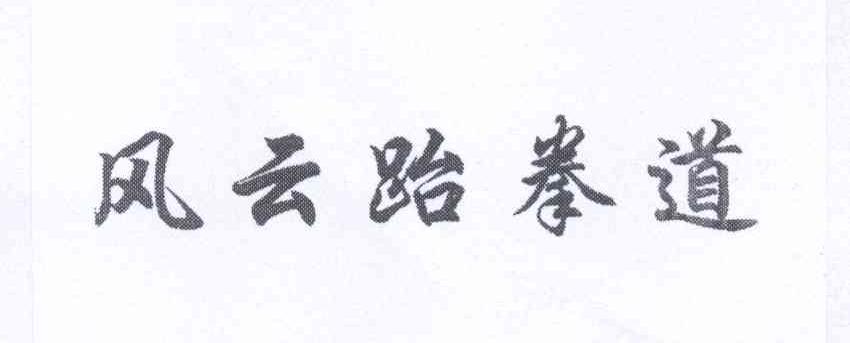 风云跆拳道